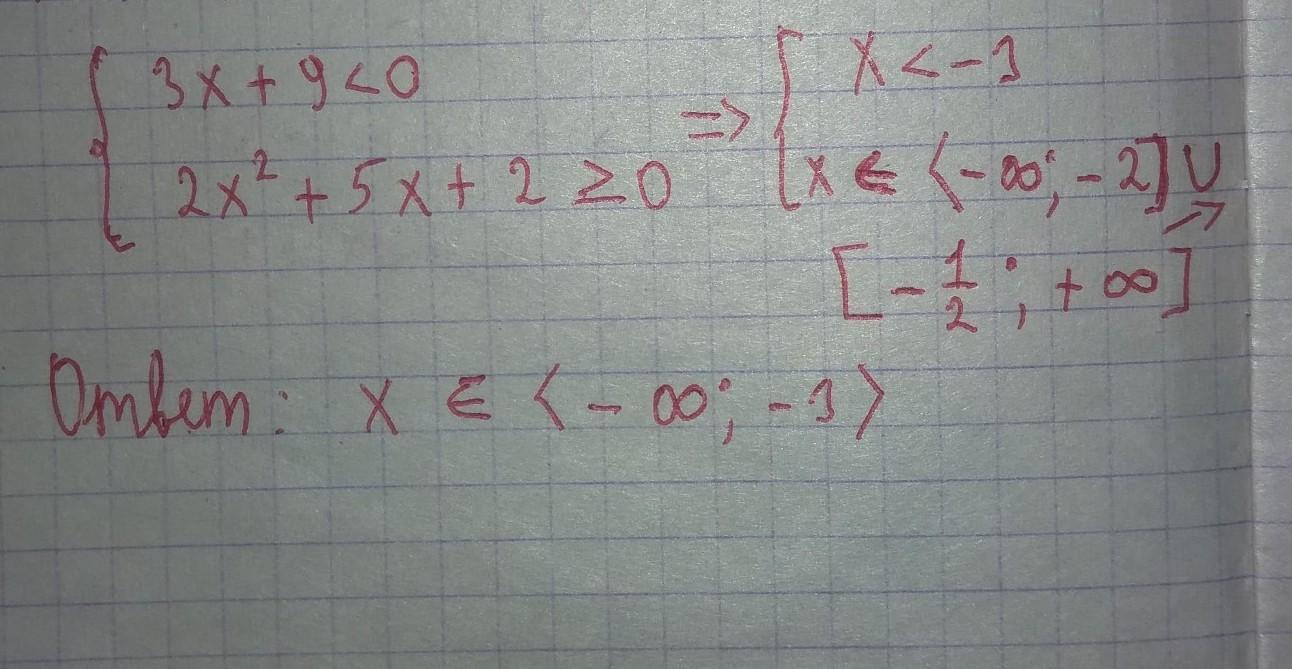 { 3x + 9 < 0
2x² + 5x + 2 ≥ 0
=> { x < -3
x ∈ ⟨-∞; -2] ∪
[-1/2; +∞]
Ответ: x ∈ ⟨-∞; -3⟩